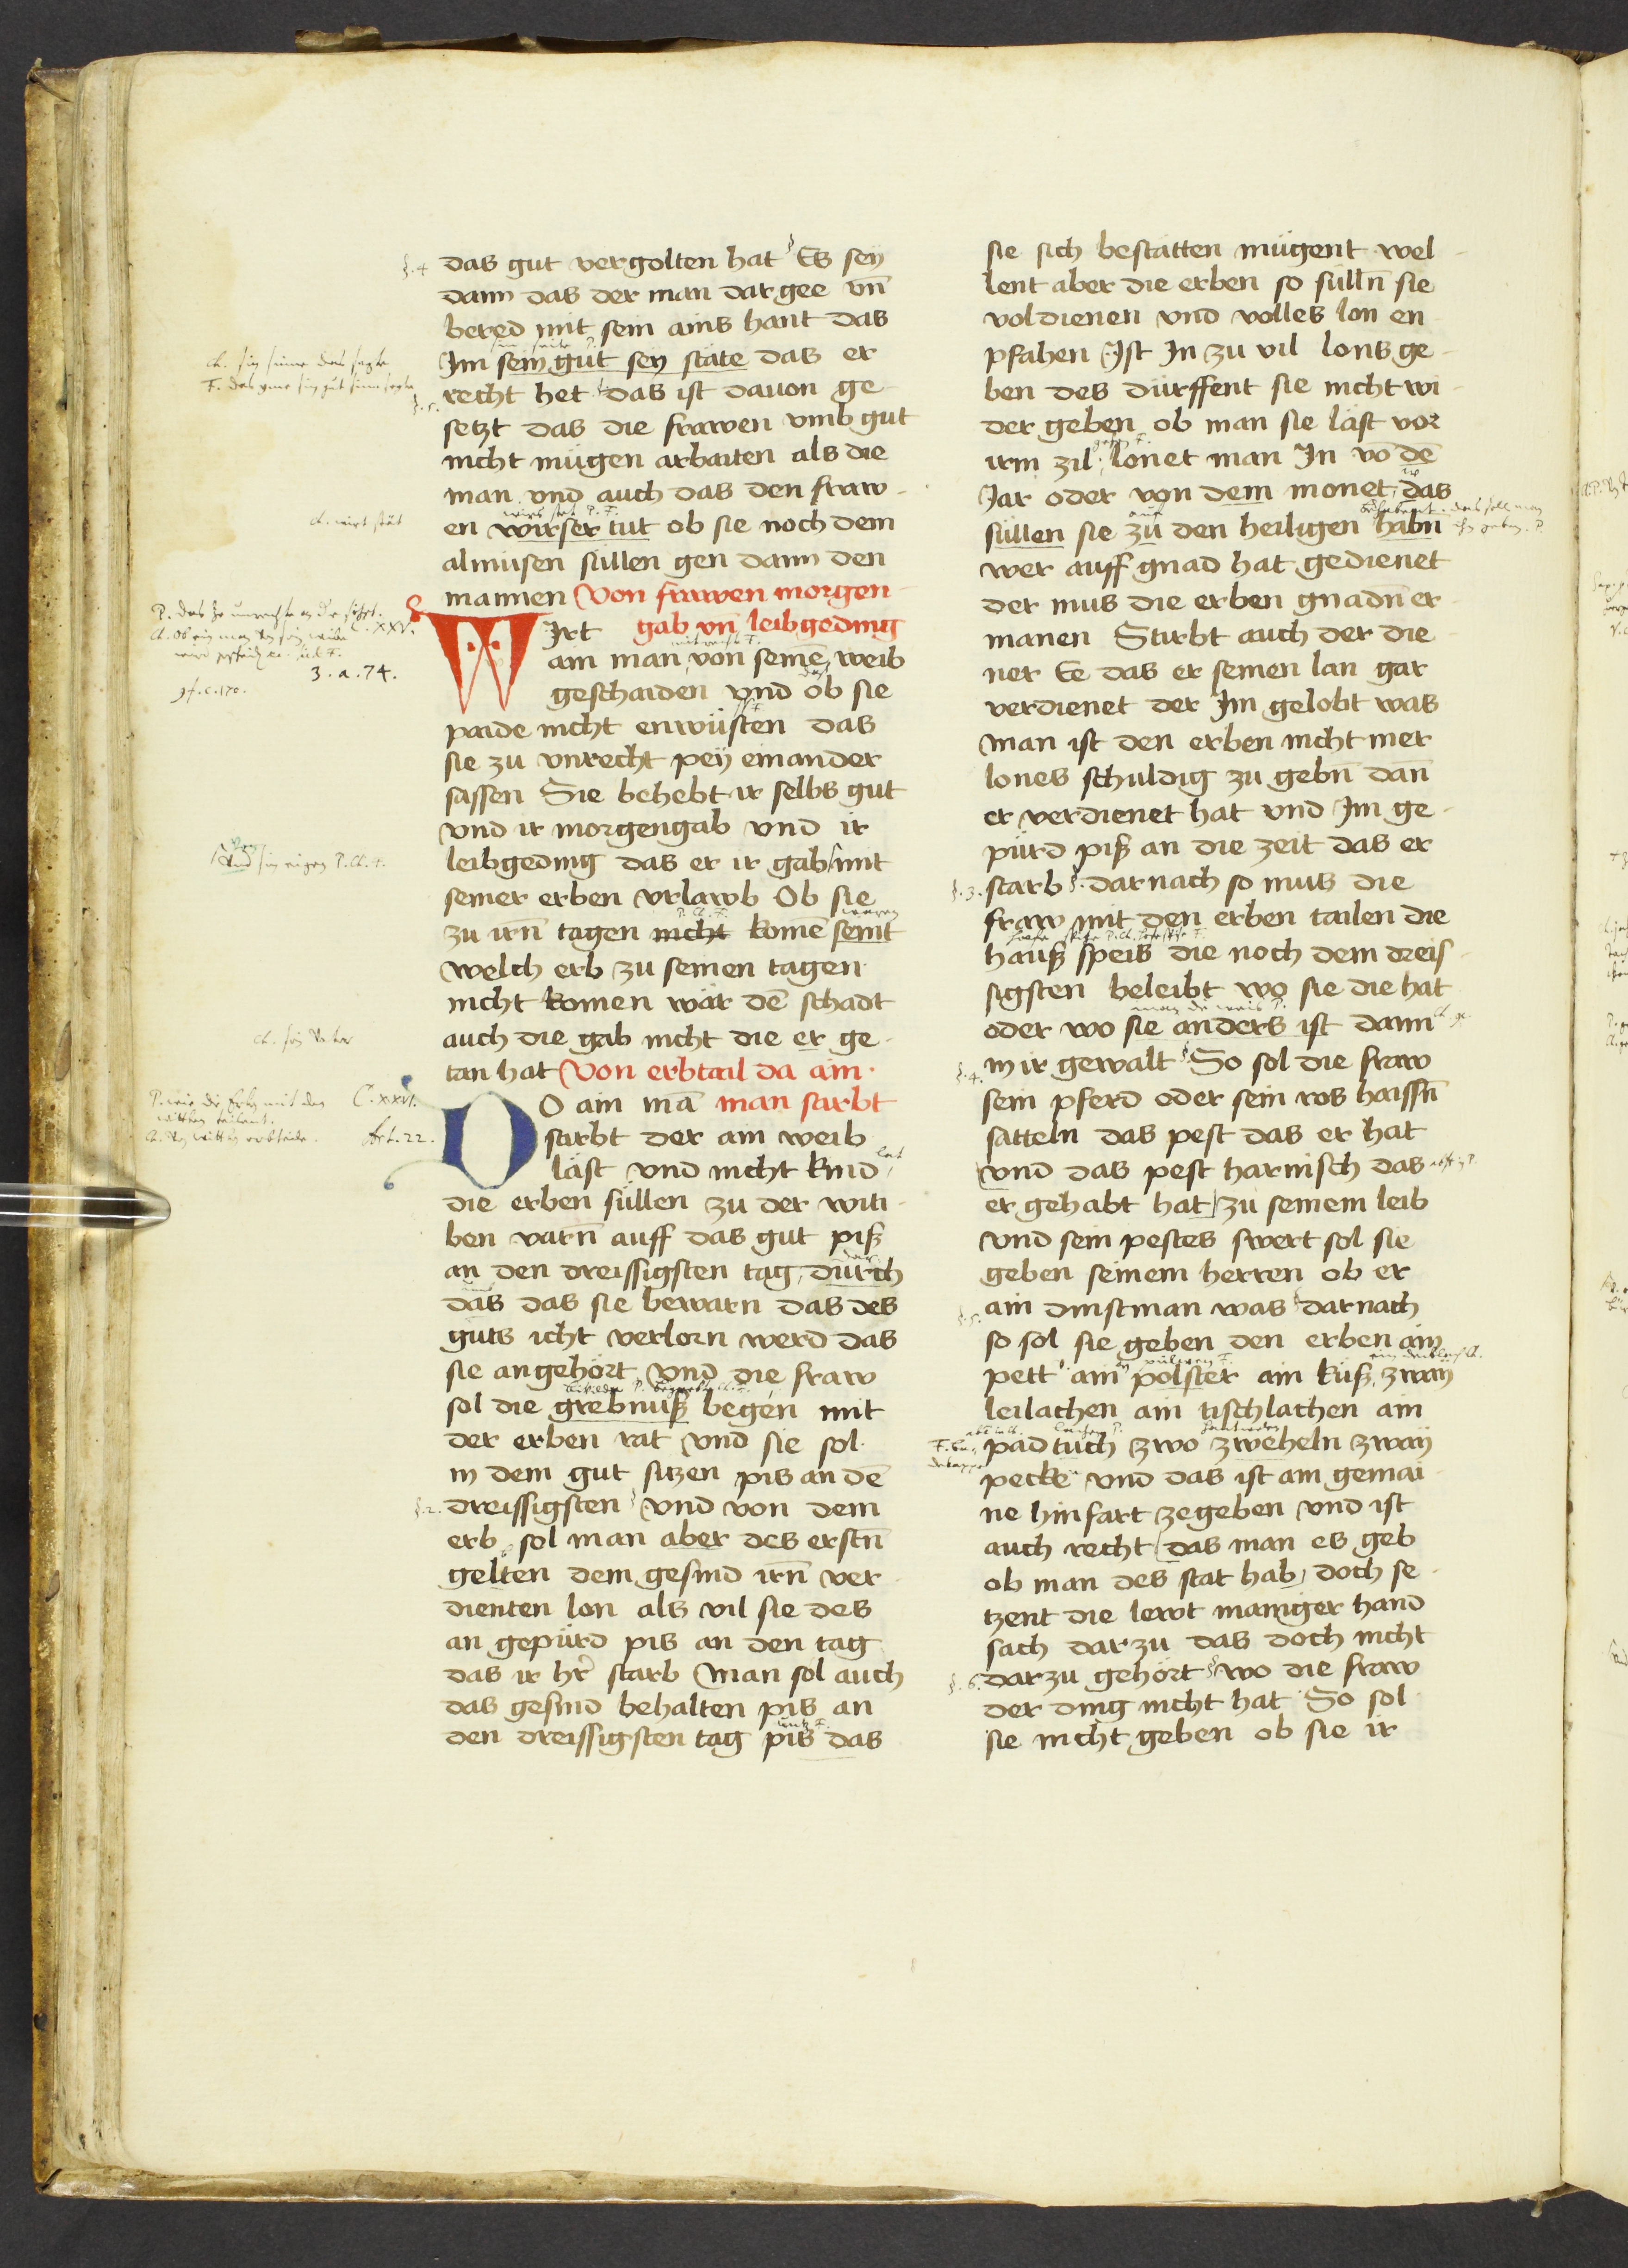 das gut vergolten hat Es sey
dann das der man dar gee vn̄
bered mit sein ains hant das
Im sein gut sey stäte das er
recht het das ist dauon ge
setzt das die frawen vmb gut
nicht mügen arbaiten als die
man vnd auch das den fraw
en wirser tut ob sie noch dem
almusen süllen gen dann den
mannen Von frawen morgen
Irt gab vn̄ leibgeding
ain man von seinē weib
geschaiden vnd ob sie
paide nicht enwüsten das
sie zu vnrecht pey einander
sassen Sie behebt ir selbs gut
vnd ir morgengab vnd ir
leibgeding das er ir gab mit
seiner erben vrlawb Ob sie
zu irn̄ tagen nicht komē seint
welch erb zu seinen tagen
nicht komen wär dē schadt
auch die gab nicht die er ge
tan hat Von erbtail da ain
O ain mā man starbt
starbt der ain weib
läst vnd nicht kind
die erben süllen zu der witi
ben varn̄ auff das gut piß
an den dreissigsten tag durch
das das sie bewarn das des
guts icht verlorn werd das
sie angehört vnd die fraw
sol die grebnuß begen mit
der erben rat vnd sie sol
in dem gut sitzen pis an dē
dreissigsten vnd von dem
erb sol man aber des erstn̄
gelten dem gesind irn̄ ver
dienten lon als vil sie des
an gepürd pis an den tag
das ir hr̄ starb Man sol auch
das gesind behalten pis an
den dreissigsten tag pis das
sie sich bestatten mügent wel
lent aber die erben so sülln̄ sie
voldienen vnd volles lon en
pfahen Ist In zu vil lons ge
ben des dürffent sie nicht wi
der geben ob man sie läst vor
irm zil lonet man In vō dē
Jar oder von dem monet das
süllen sie zu den heiligen habn̄
wer auff gnad hat gedienet
der mus die erben gnadn̄ er
manen Stirbt auch der die
ner Ee das er seinen lan gar
verdienet der Im gelobt was
Man ist den erben nicht mer
lones schuldig zu gebn̄ dan̄
er verdienet hat vnd Im ge
pürd piß an die zeit das er
starb darnach so mus die
fraw mit den erben tailen die
hauß speis die noch dem dreis
sigsten beleibt wo sie die hat
oder wo sie anders ist dann
in ir gewalt So sol die fraw
sein pferd oder sein ros haissn̄
satteln das pest das er hat
vnd das pest harnisch das
er gehabt hat zu seinem leib
vnd sein pestes swert sol sie
geben seinem herren ob er
ain dinstman was darnach
so sol sie geben den erben ain
pett ain polster ain küß zway
leilachen ain tischlachen ain
pad tuch zwo zweheln zway
pecke vnd das ist ain gemai
ne hinfart zegeben vnd ist
auch recht das man es geb
ob man des stat hab doch se
tzent die lewt maniger hand
sach darzu das doch nicht
darzu gehört wo die fraw
der ding nicht hat So sol
sie nicht geben ob sie ir
§. 4
C. XXV.
3. a. 74.
C. XXVI.
Art. 22.
§. 2.
§. 3.
§. 4.
§. 5.
§. 6.